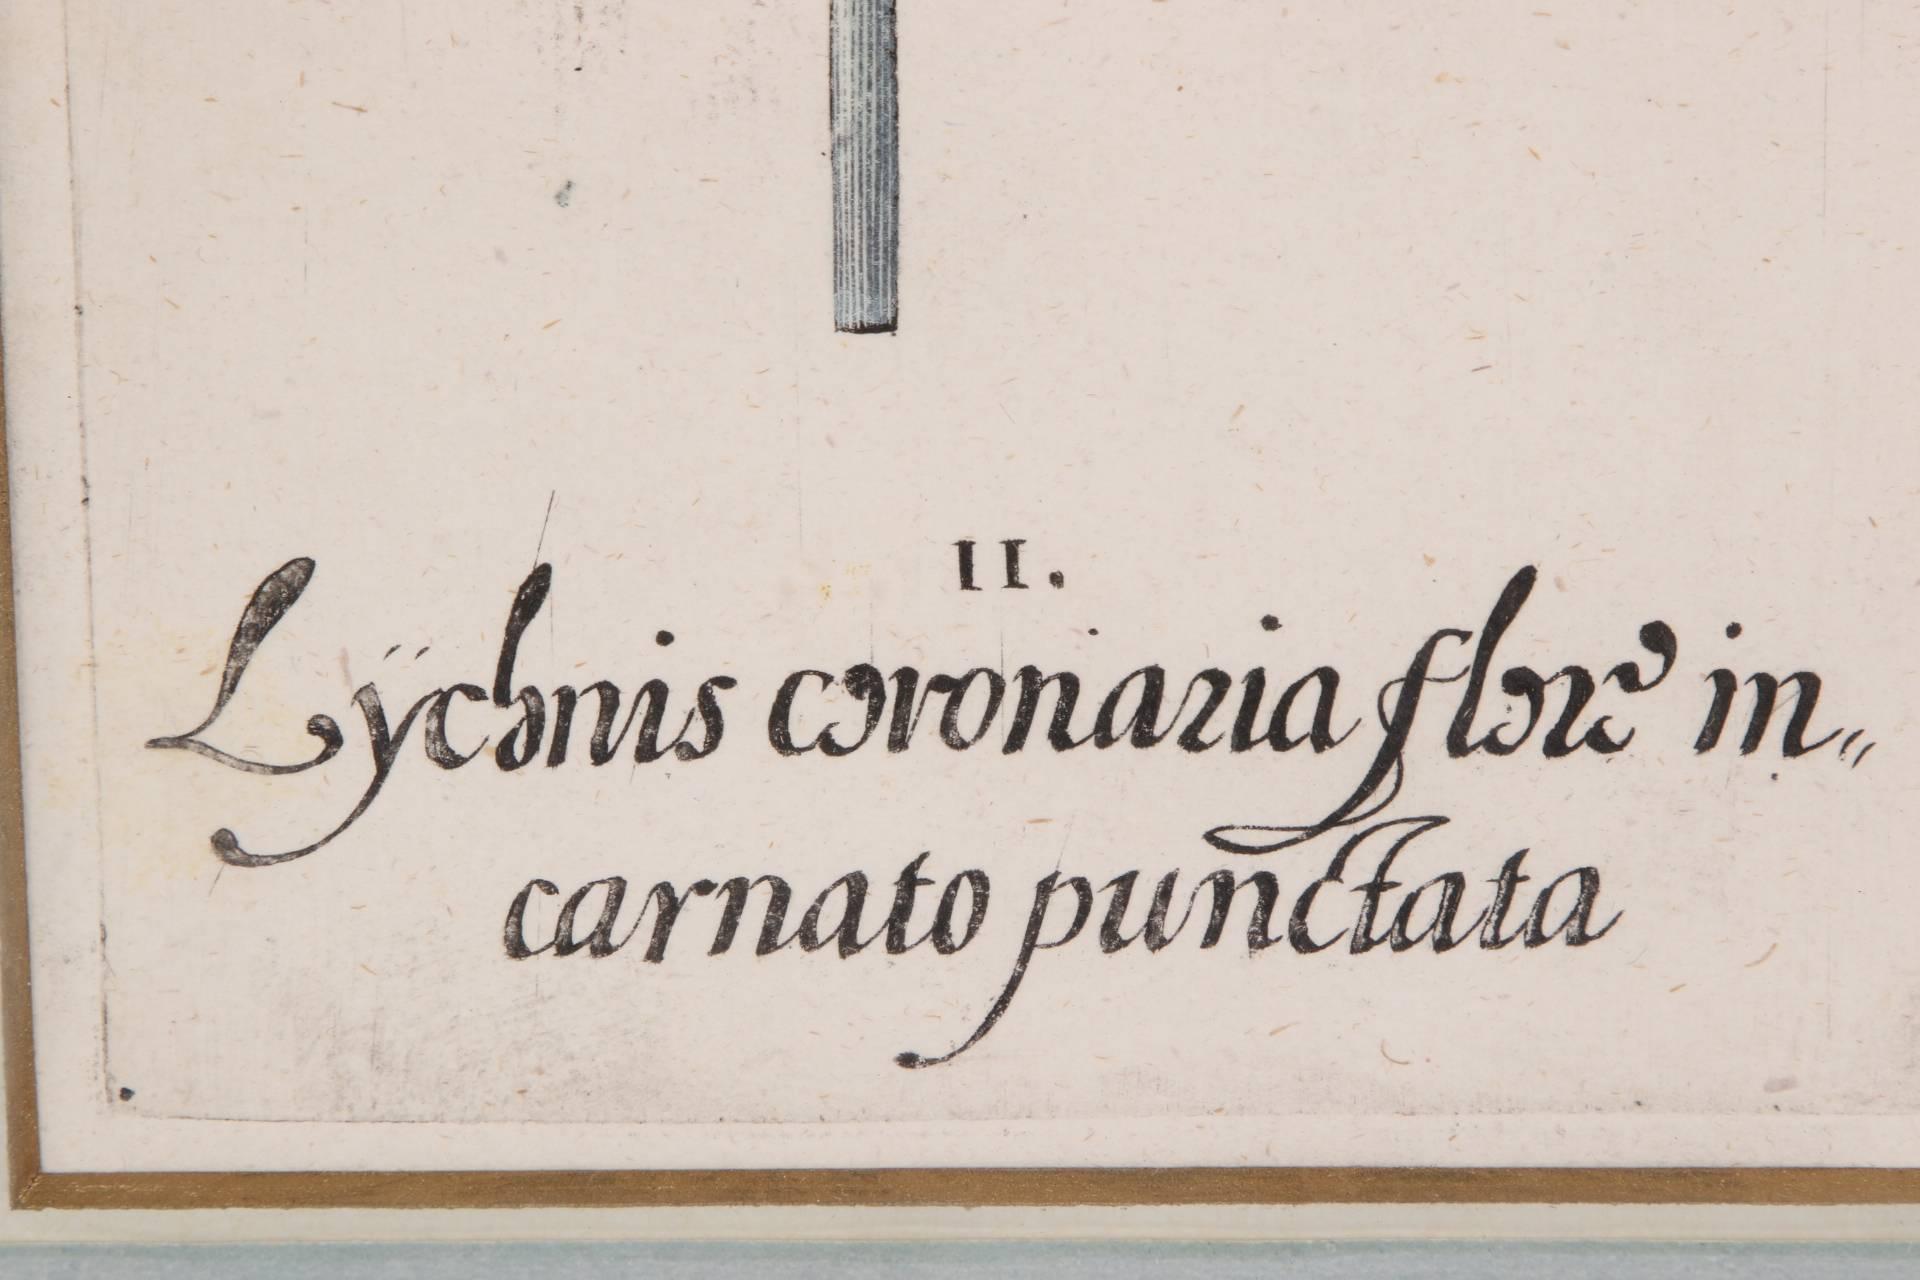 II.
Lÿchnis coronaria flore in„
carnato punctata